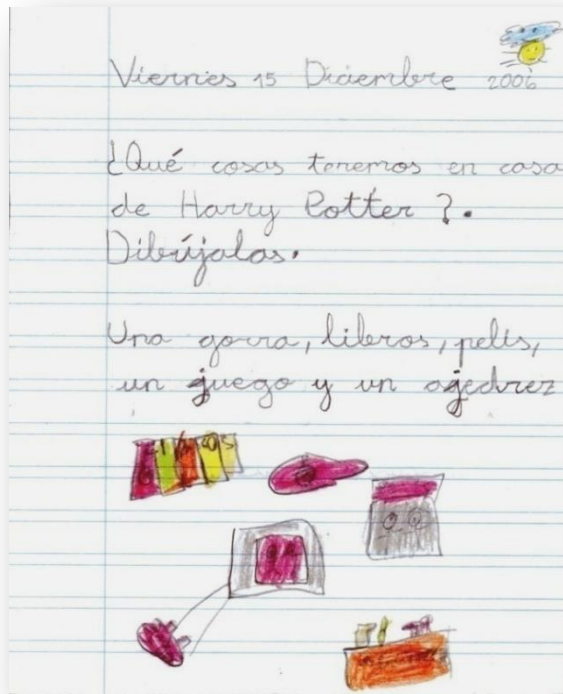 Viernes 15 Diciembre 2006
¿Qué cosas tenemos en casa
de Harry Potter?.
Dibújalas.
Una gorra, libros, pelis,
un juego y un ajedrez